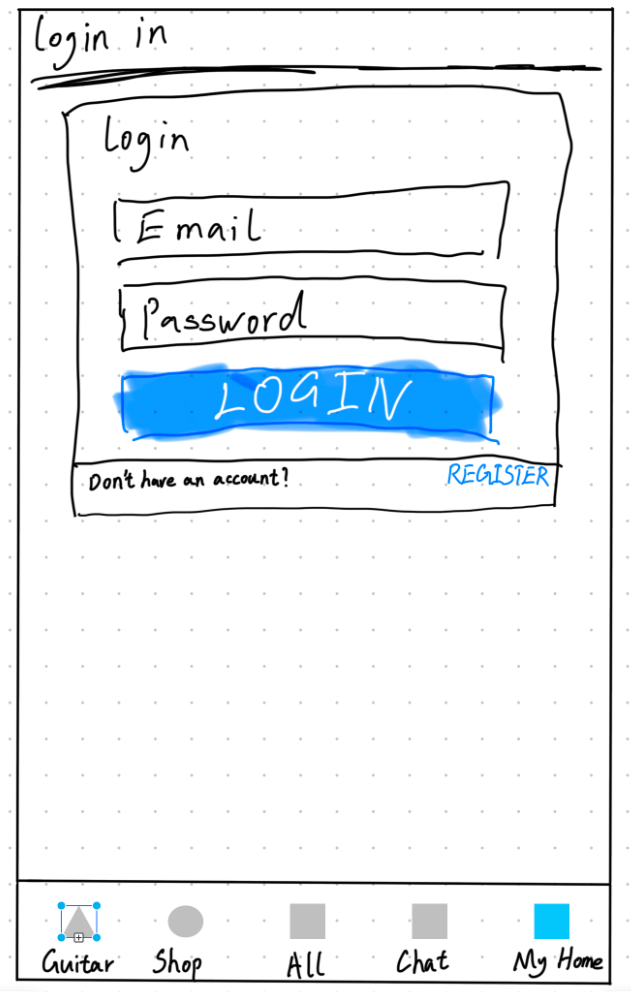 Login in
Login
Email
Password
LOGIN
Don't have an account? REGISTER
Guitar Shop All Chat My Home